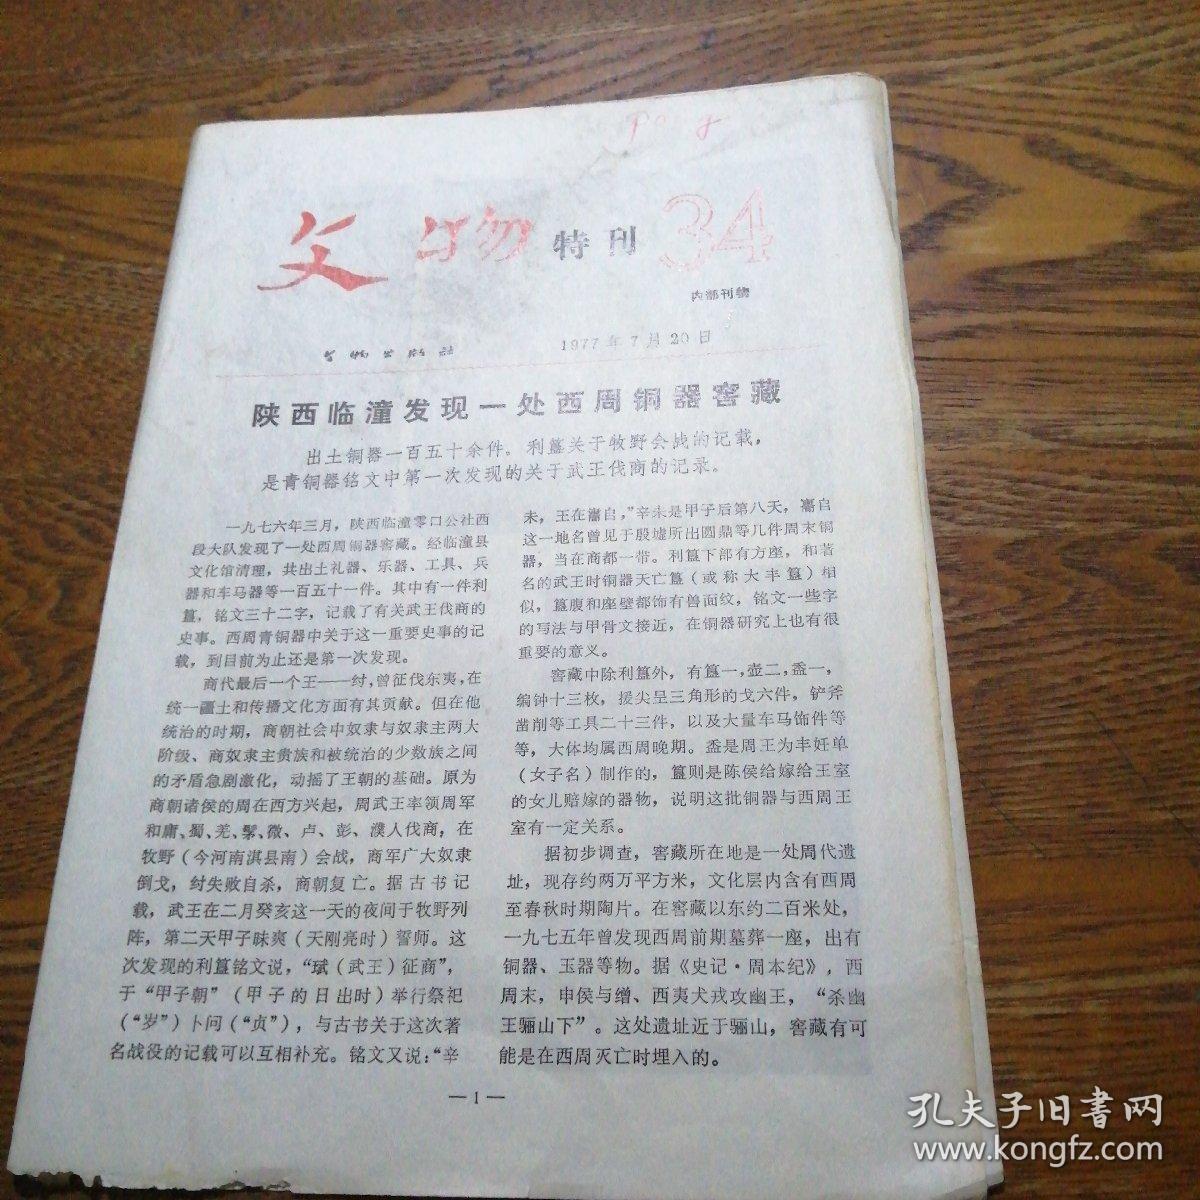 文物特刊 34
内部刊物
文物出版社 1977年7月20日
陕西临潼发现一处西周铜器窖藏
出土铜器一百五十余件。利簋关于牧野会战的记载，
是青铜器铭文中第一次发现的关于武王伐商的记录。
一九七六年三月，陕西临潼零口公社西
段大队发现了一处西周铜器窖藏。经临潼县
文化馆清理，共出土礼器、乐器、工具、兵
器和车马器等一百五十一件。其中有一件利
簋，铭文三十二字，记载了有关武王伐商的
史事。西周青铜器中关于这一重要史事的记
载，到目前为止还是第一次发现。
商代最后一个王——纣，曾征伐东夷，在
统一疆土和传播文化方面有其贡献。但在他
统治的时期，商朝社会中奴隶与奴隶主两大
阶级、商奴隶主贵族和被统治的少数族之间
的矛盾急剧激化，动摇了王朝的基础。原为
商朝诸侯的周在西方兴起，周武王率领周军
和庸、蜀、羌、髳、微、卢、彭、濮人伐商，在
牧野（今河南淇县南）会战，商军广大奴隶
倒戈，纣失败自杀，商朝复亡。据古书记
载，武王在二月癸亥这一天的夜间于牧野列
阵，第二天甲子昧爽（天刚亮时）誓师。这
次发现的利簋铭文说，“珷（武王）征商”，
于“甲子朝”（甲子的日出时）举行祭祀
（“岁”）卜问（“贞”），与古书关于这次著
名战役的记载可以互相补充。铭文又说：“辛
未，王在𬮿自，”辛未是甲子后第八天，𬮿自
这一地名曾见于殷墟所出圆鼎等几件周末铜
器，当在商都一带。利簋下部有方座，和著
名的武王时铜器天亡簋（或称大丰簋）相
似，簋腹和座壁都饰有兽面纹，铭文一些字
的写法与甲骨文接近，在铜器研究上也有很
重要的意义。
窖藏中除利簋外，有簋一，壶二，盉一，
编钟十三枚，援尖呈三角形的戈六件，铲斧
凿削等工具二十三件，以及大量车马饰件等
等，大体均属西周晚期。盉是周王为丰妊单
（女子名）制作的，簋则是陈侯给嫁给王室
的女儿赔嫁的器物，说明这批铜器与西周王
室有一定关系。
据初步调查，窖藏所在地是一处周代遗
址，现存约两万平方米，文化层内含有西周
至春秋时期陶片。在窖藏以东约二百米处，
一九七五年曾发现西周前期墓葬一座，出有
铜器、玉器等物。据《史记·周本纪》，西
周末，申侯与缯、西夷犬戎攻幽王，“杀幽
王骊山下”。这处遗址近于骊山，窖藏有可
能是在西周灭亡时埋入的。
—1—
孔夫子旧书网
www.kongfz.com